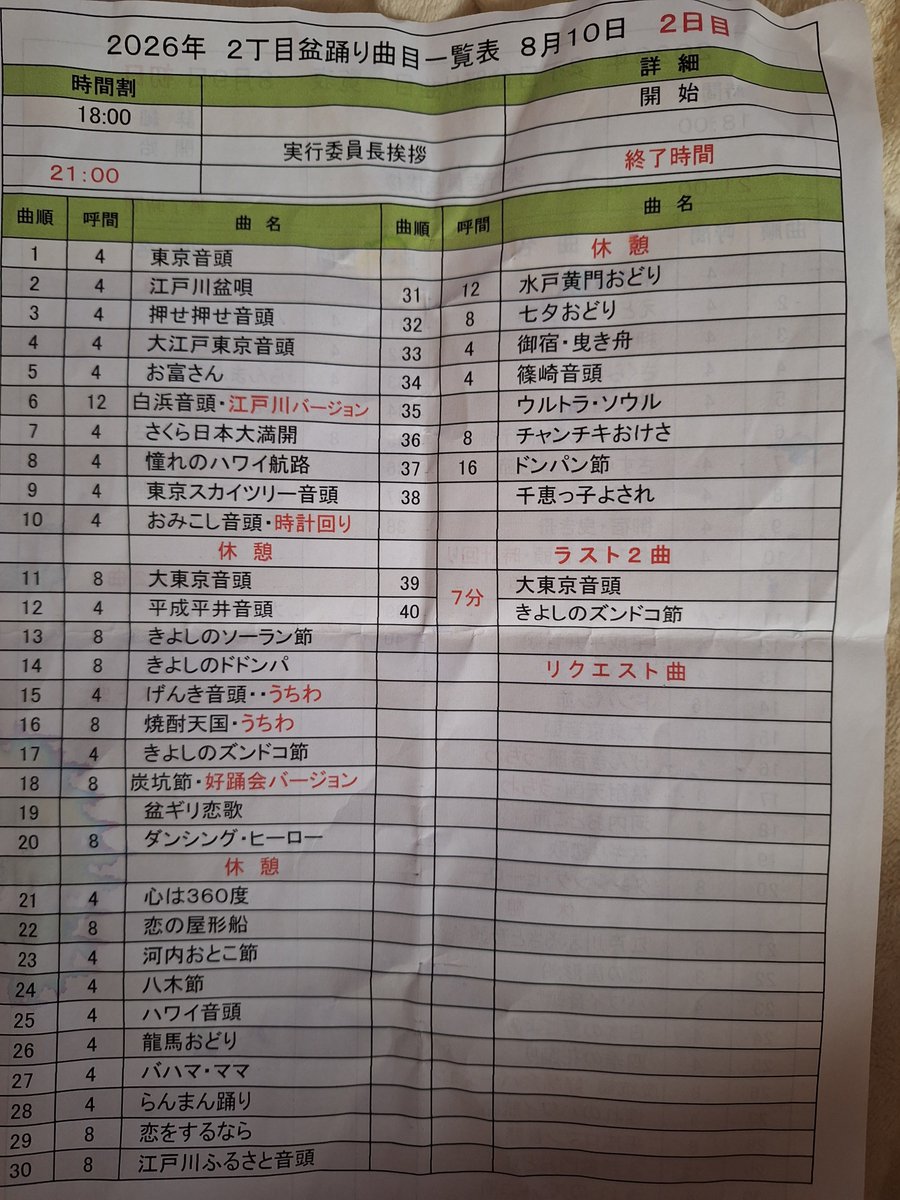 2026年 2丁目盆踊り曲目一覧表 8月10日 2日目
時間割 詳細
18:00 開始
実行委員長挨拶
21:00 終了時間
曲順 呼間 曲名
1 4 東京音頭
2 4 江戸川盆唄
3 4 押せ押せ音頭
4 4 大江戸東京音頭
5 4 お富さん
6 12 白浜音頭・江戸川バージョン
7 4 さくら日本大満開
8 4 憧れのハワイ航路
9 4 東京スカイツリー音頭
10 4 おみこし音頭・時計回り
休憩
11 8 大東京音頭
12 4 平成平井音頭
13 8 きよしのソーラン節
14 8 きよしのドドンパ
15 4 げんき音頭・・うちわ
16 8 焼酎天国・うちわ
17 4 きよしのズンドコ節
18 8 炭坑節・好踊会バージョン
19 盆ギリ恋歌
20 8 ダンシング・ヒーロー
休憩
21 4 心は360度
22 8 恋の屋形船
23 4 河内おとこ節
24 4 八木節
25 4 ハワイ音頭
26 4 龍馬おどり
27 4 バハマ・ママ
28 4 らんまん踊り
29 8 恋をするなら
30 8 江戸川ふるさと音頭
曲順 呼間 曲名
休憩
31 12 水戸黄門おどり
32 8 七夕おどり
33 4 御宿・曳き舟
34 4 篠崎音頭
35 ウルトラ・ソウル
36 8 チャンチキおけさ
37 16 ドンパン節
38 千恵っ子よされ
ラスト2曲
39 7分 大東京音頭
40 きよしのズンドコ節
リクエスト曲